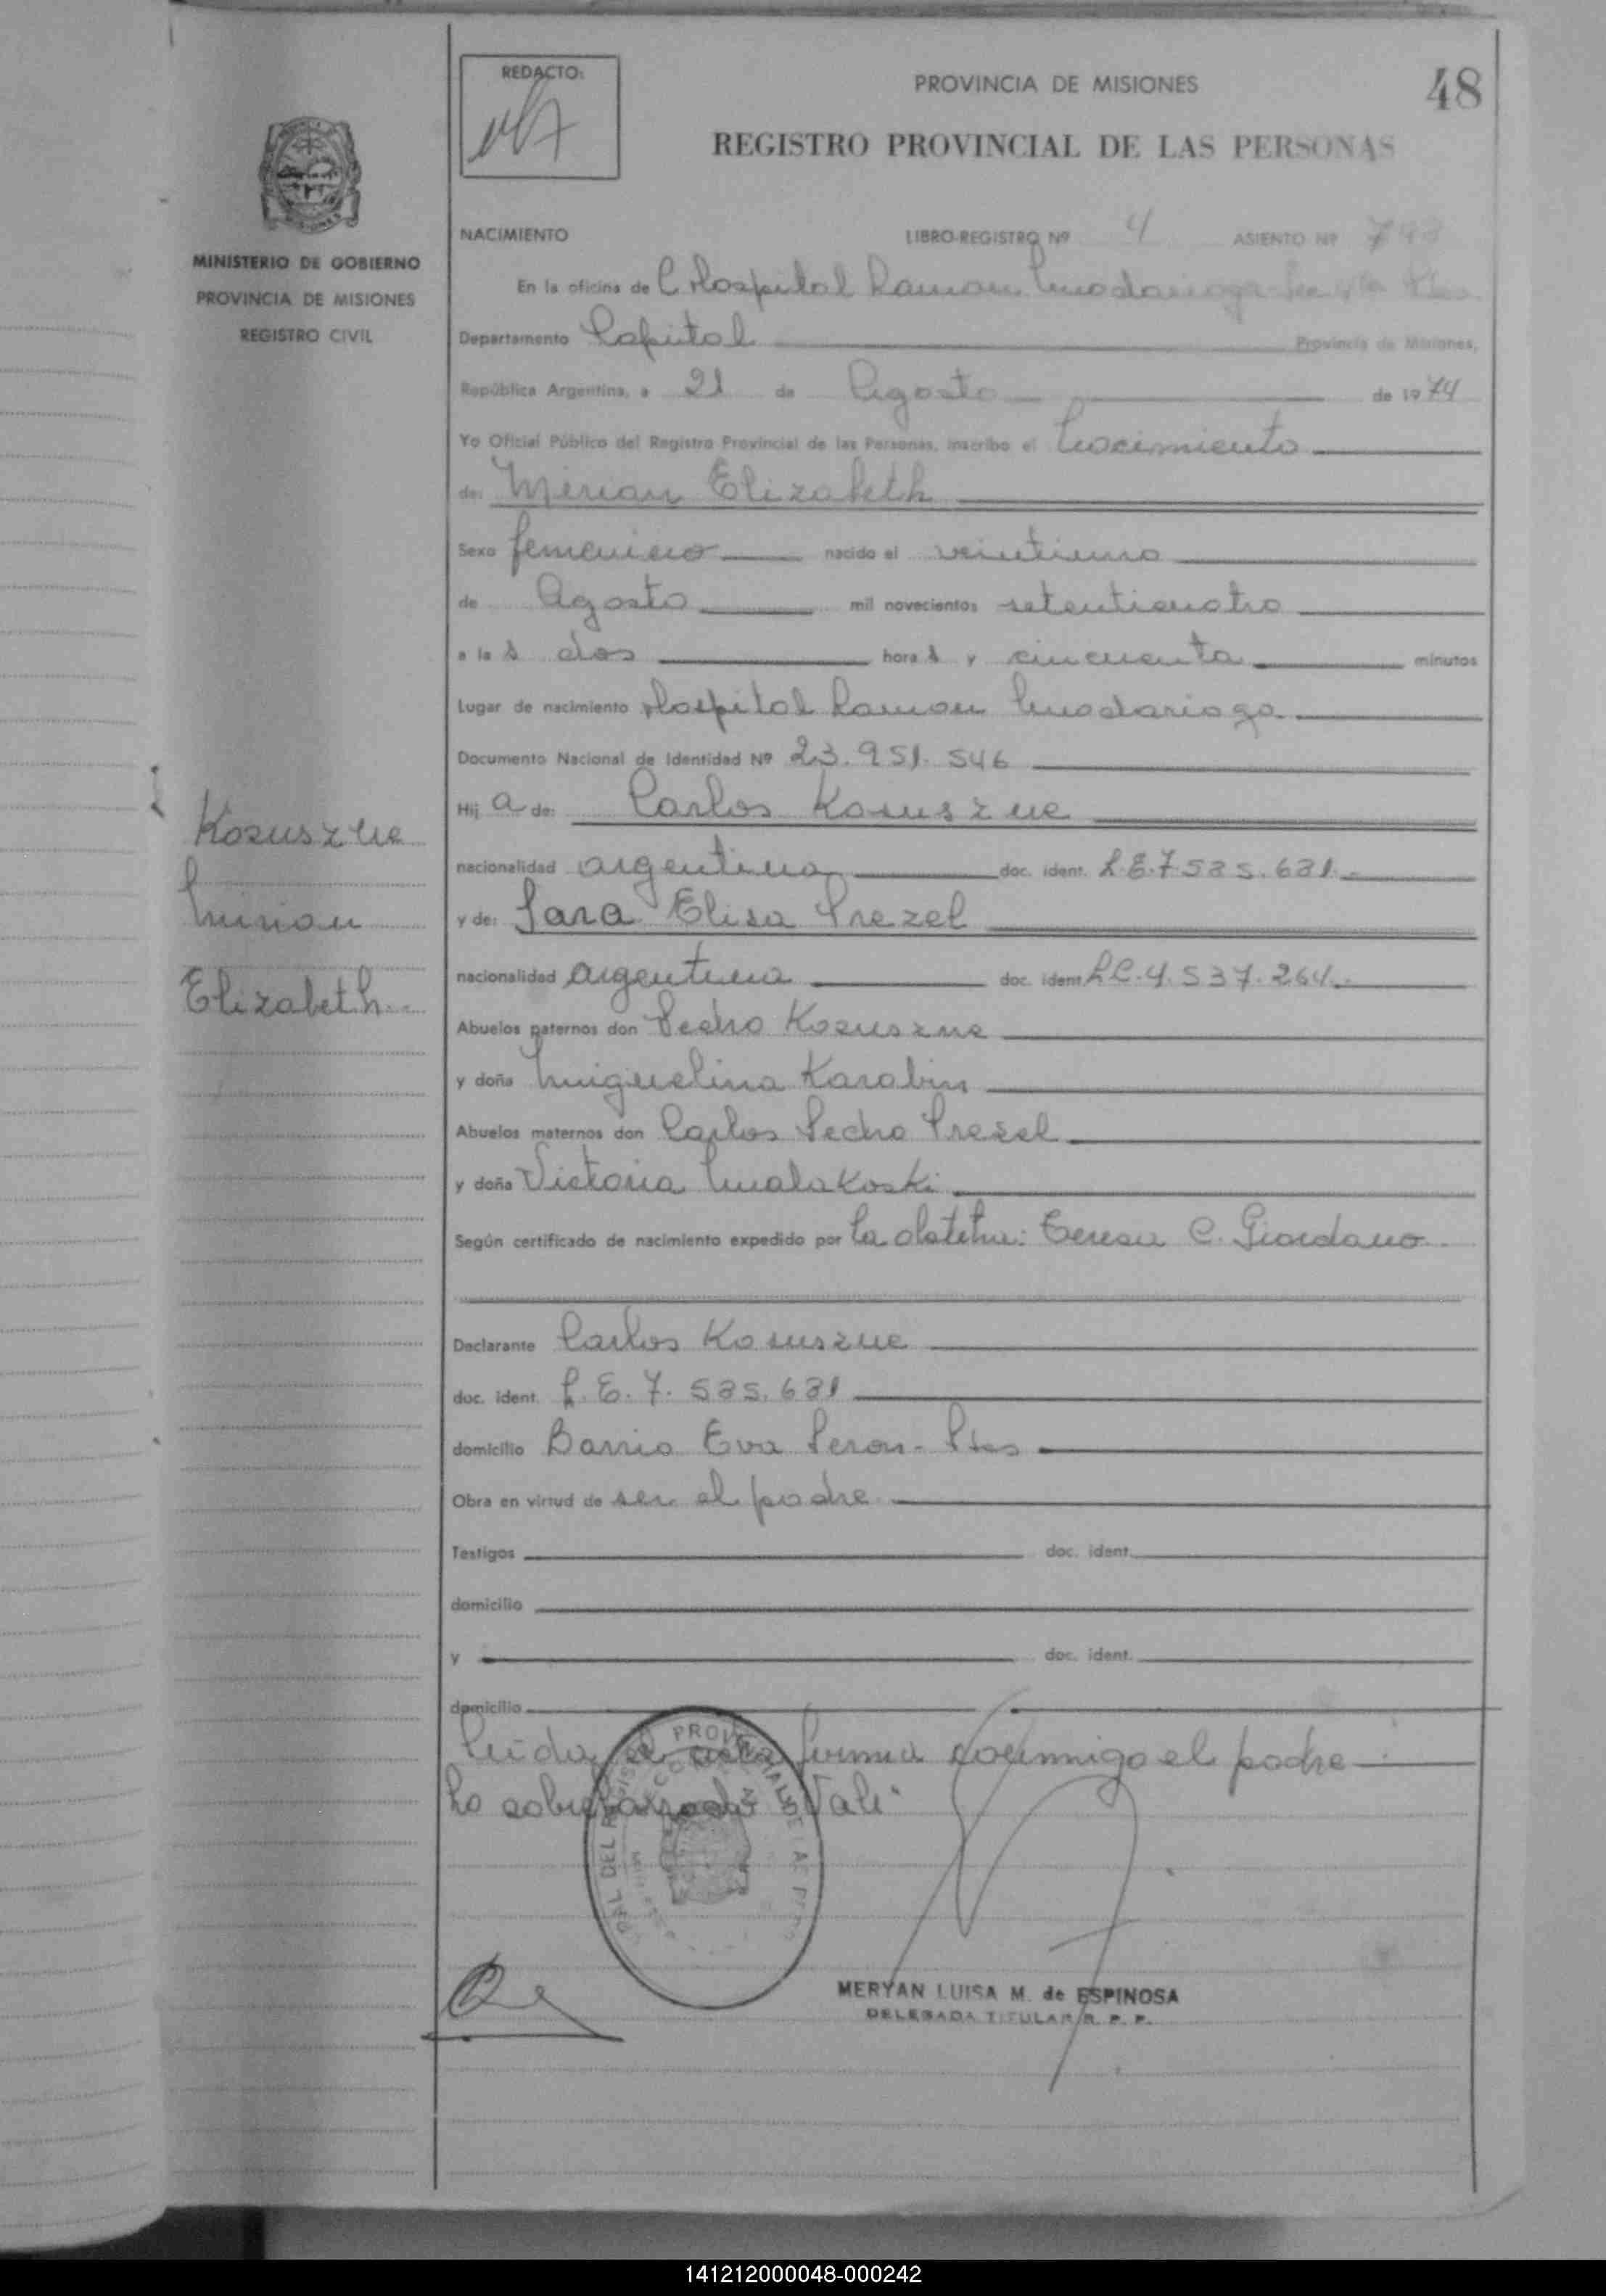 REDACTO:
PROVINCIA DE MISIONES
48
REGISTRO PROVINCIAL DE LAS PERSONAS
MINISTERIO DE GOBIERNO
PROVINCIA DE MISIONES
REGISTRO CIVIL
NACIMIENTO LIBRO-REGISTRO Nº 4 ASIENTO Nº
En la oficina de C Hospital Ramon Madariaga
Departamento Capital Provincia de Misiones,
República Argentina, a 21 de Agosto de 1974
Yo Oficial Público del Registro Provincial de las Personas, inscribo el Nacimiento
de: Mirian Elizabeth
Sexo femenino nacido el veintiuno
de Agosto mil novecientos setenticuatro
a las dos horas y cincuenta minutos
Lugar de nacimiento Hospital Ramon Madariaga
Documento Nacional de Identidad Nº 23.951.546
Hija de: Carlos Kosuszne
nacionalidad argentina doc. ident. L.E.7.585.681.-
y de: Sara Elisa Prezel
nacionalidad argentina doc. ident. L.C.4.537.264.-
Abuelos paternos don Pedro Kozuszne
y doña Miguelina Karabin
Abuelos maternos don Carlos Pedro Prezel
y doña Victoria Malakoski
Según certificado de nacimiento expedido por la obstetra: Teresa C. Giordano
Declarante Carlos Kosuszne
doc. ident. L.E.7.585.681
domicilio Barrio Eva Peron - Pdas
Obra en virtud de ser el padre
Testigos doc. ident.
domicilio
y doc. ident.
domicilio
Leida el acta firma conmigo el padre
Lo sobrerraspado Vale
Kozuszne
Mirian
Elizabeth
MERYAN LUISA M. de ESPINOSA
DELEGADA TITULAR R. P. P.
141212000048-000242